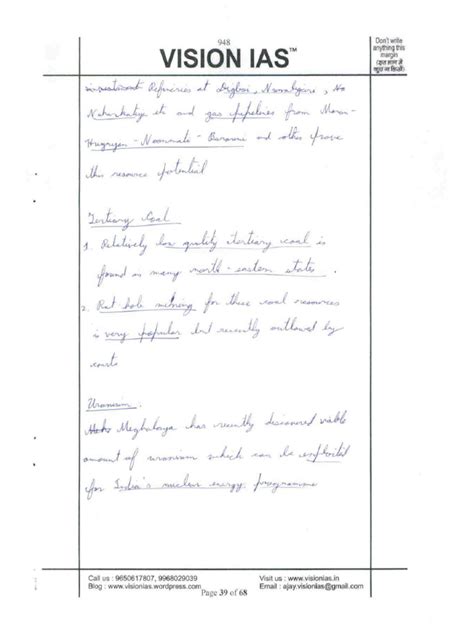 948
VISION IAS™
Don't write anything this margin
investment Refineries at Digboi, Numaligarh, No
Naharkatiya etc and gas pipelines from Moran-
Hugrijan - Noonmati - Barauni and other prove
this resource potential
Tertiary Coal
1. Relatively low quality tertiary coal is
found in many north-eastern states.
2. Rat hole mining for these coal resources
is very popular but recently outlawed by
courts
Uranium.
Meghalaya has recently discovered viable
amount of uranium which can be exploited
for India's nuclear energy programme
Call us : 9650617807, 9968029039
Visit us : www.visionias.in
Blog : www.visionias.wordpress.com
Email : ajay.visionias@gmail.com
Page 39 of 68